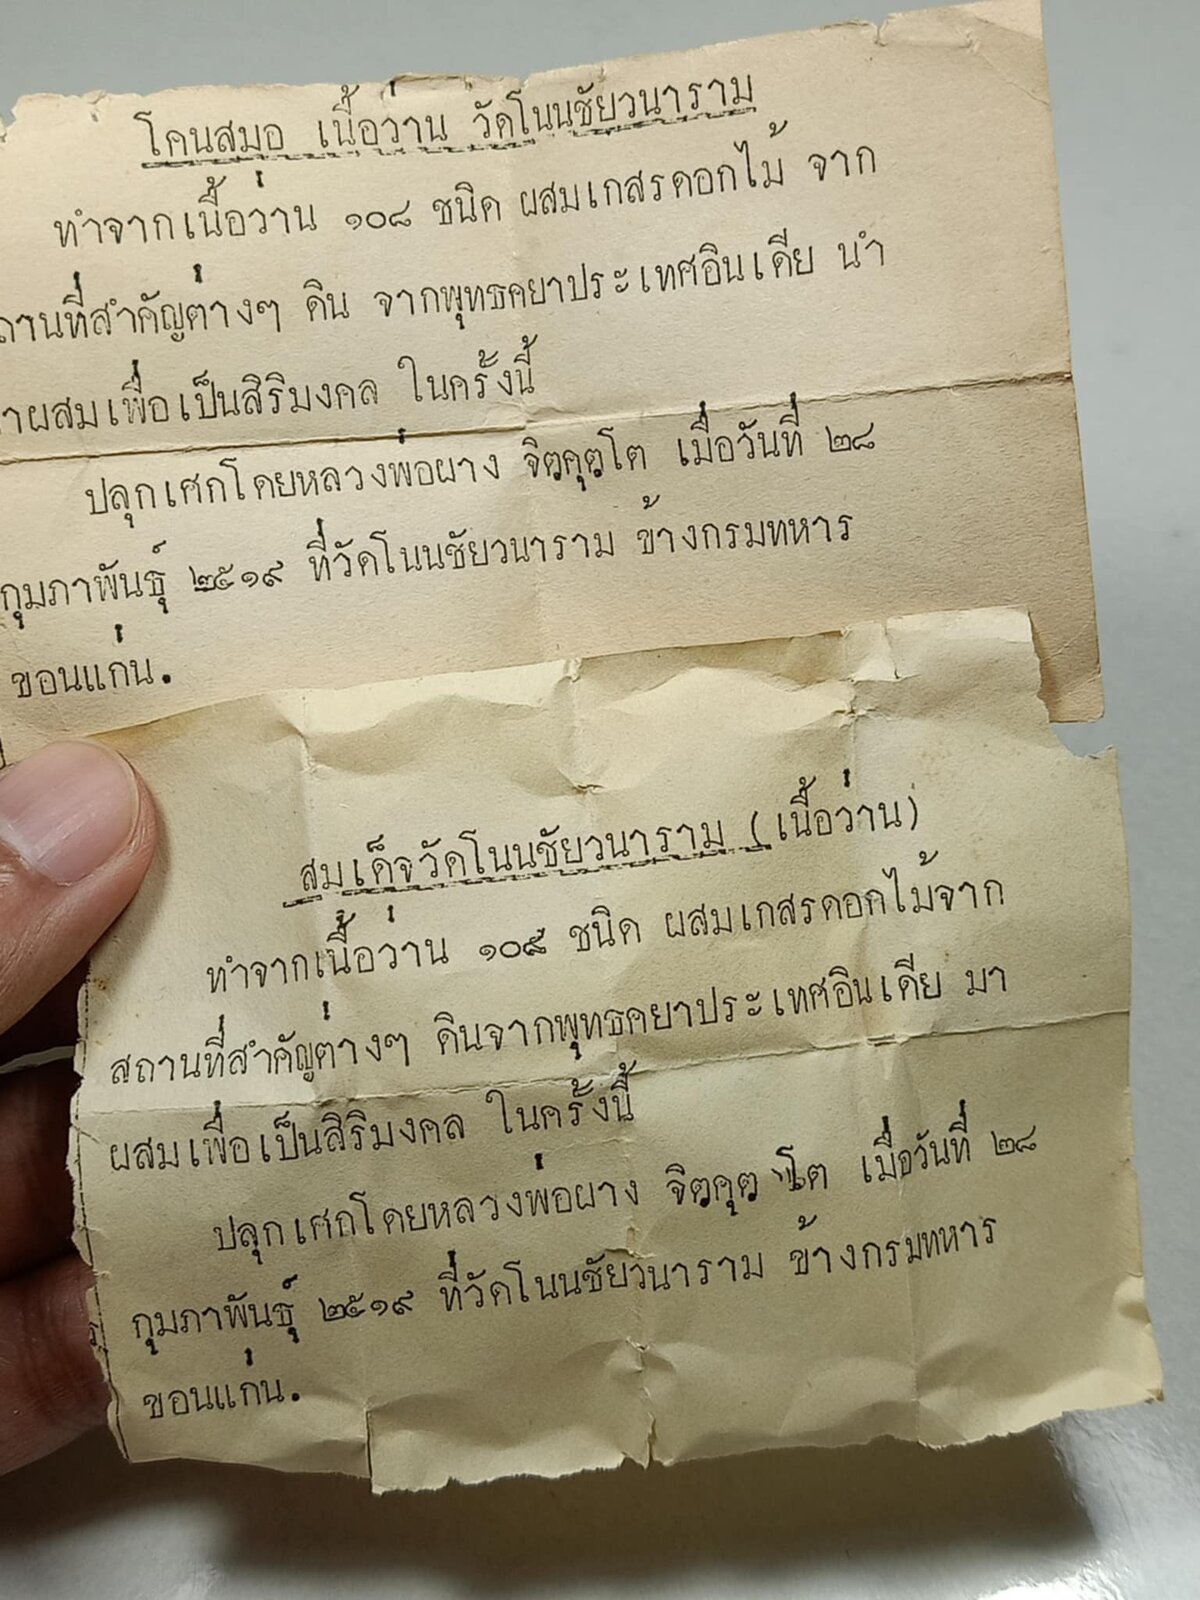 โคนสมอ เนื้อว่าน วัดโนนชัยวนาราม
ทำจากเนื้อว่าน ๑๐๘ ชนิด ผสมเกสรดอกไม้ จาก
ถานที่สำคัญต่างๆ ดิน จากพุทธคยาประเทศอินเดีย นำ
าผสมเพื่อเป็นสิริมงคล ในครั้งนี้
ปลุกเศกโดยหลวงพ่อผาง จิตฺคุตฺโต เมื่อวันที่ ๒๘
กุมภาพันธุ์ ๒๕๑๙ ที่วัดโนนชัยวนาราม ข้างกรมทหาร
ขอนแก่น.
สมเด็จวัดโนนชัยวนาราม (เนื้อว่าน)
ทำจากเนื้อว่าน ๑๐๘ ชนิด ผสมเกสรดอกไม้จาก
สถานที่สำคัญต่างๆ ดินจากพุทธคยาประเทศอินเดีย มา
ผสมเพื่อเป็นสิริมงคล ในครั้งนี้
ปลุกเศกโดยหลวงพ่อผาง จิตฺคุตฺ โต เมื่อวันที่ ๒๘
กุมภาพันธุ์ ๒๕๑๙ ที่วัดโนนชัยวนาราม ข้างกรมทหาร
ขอนแก่น.